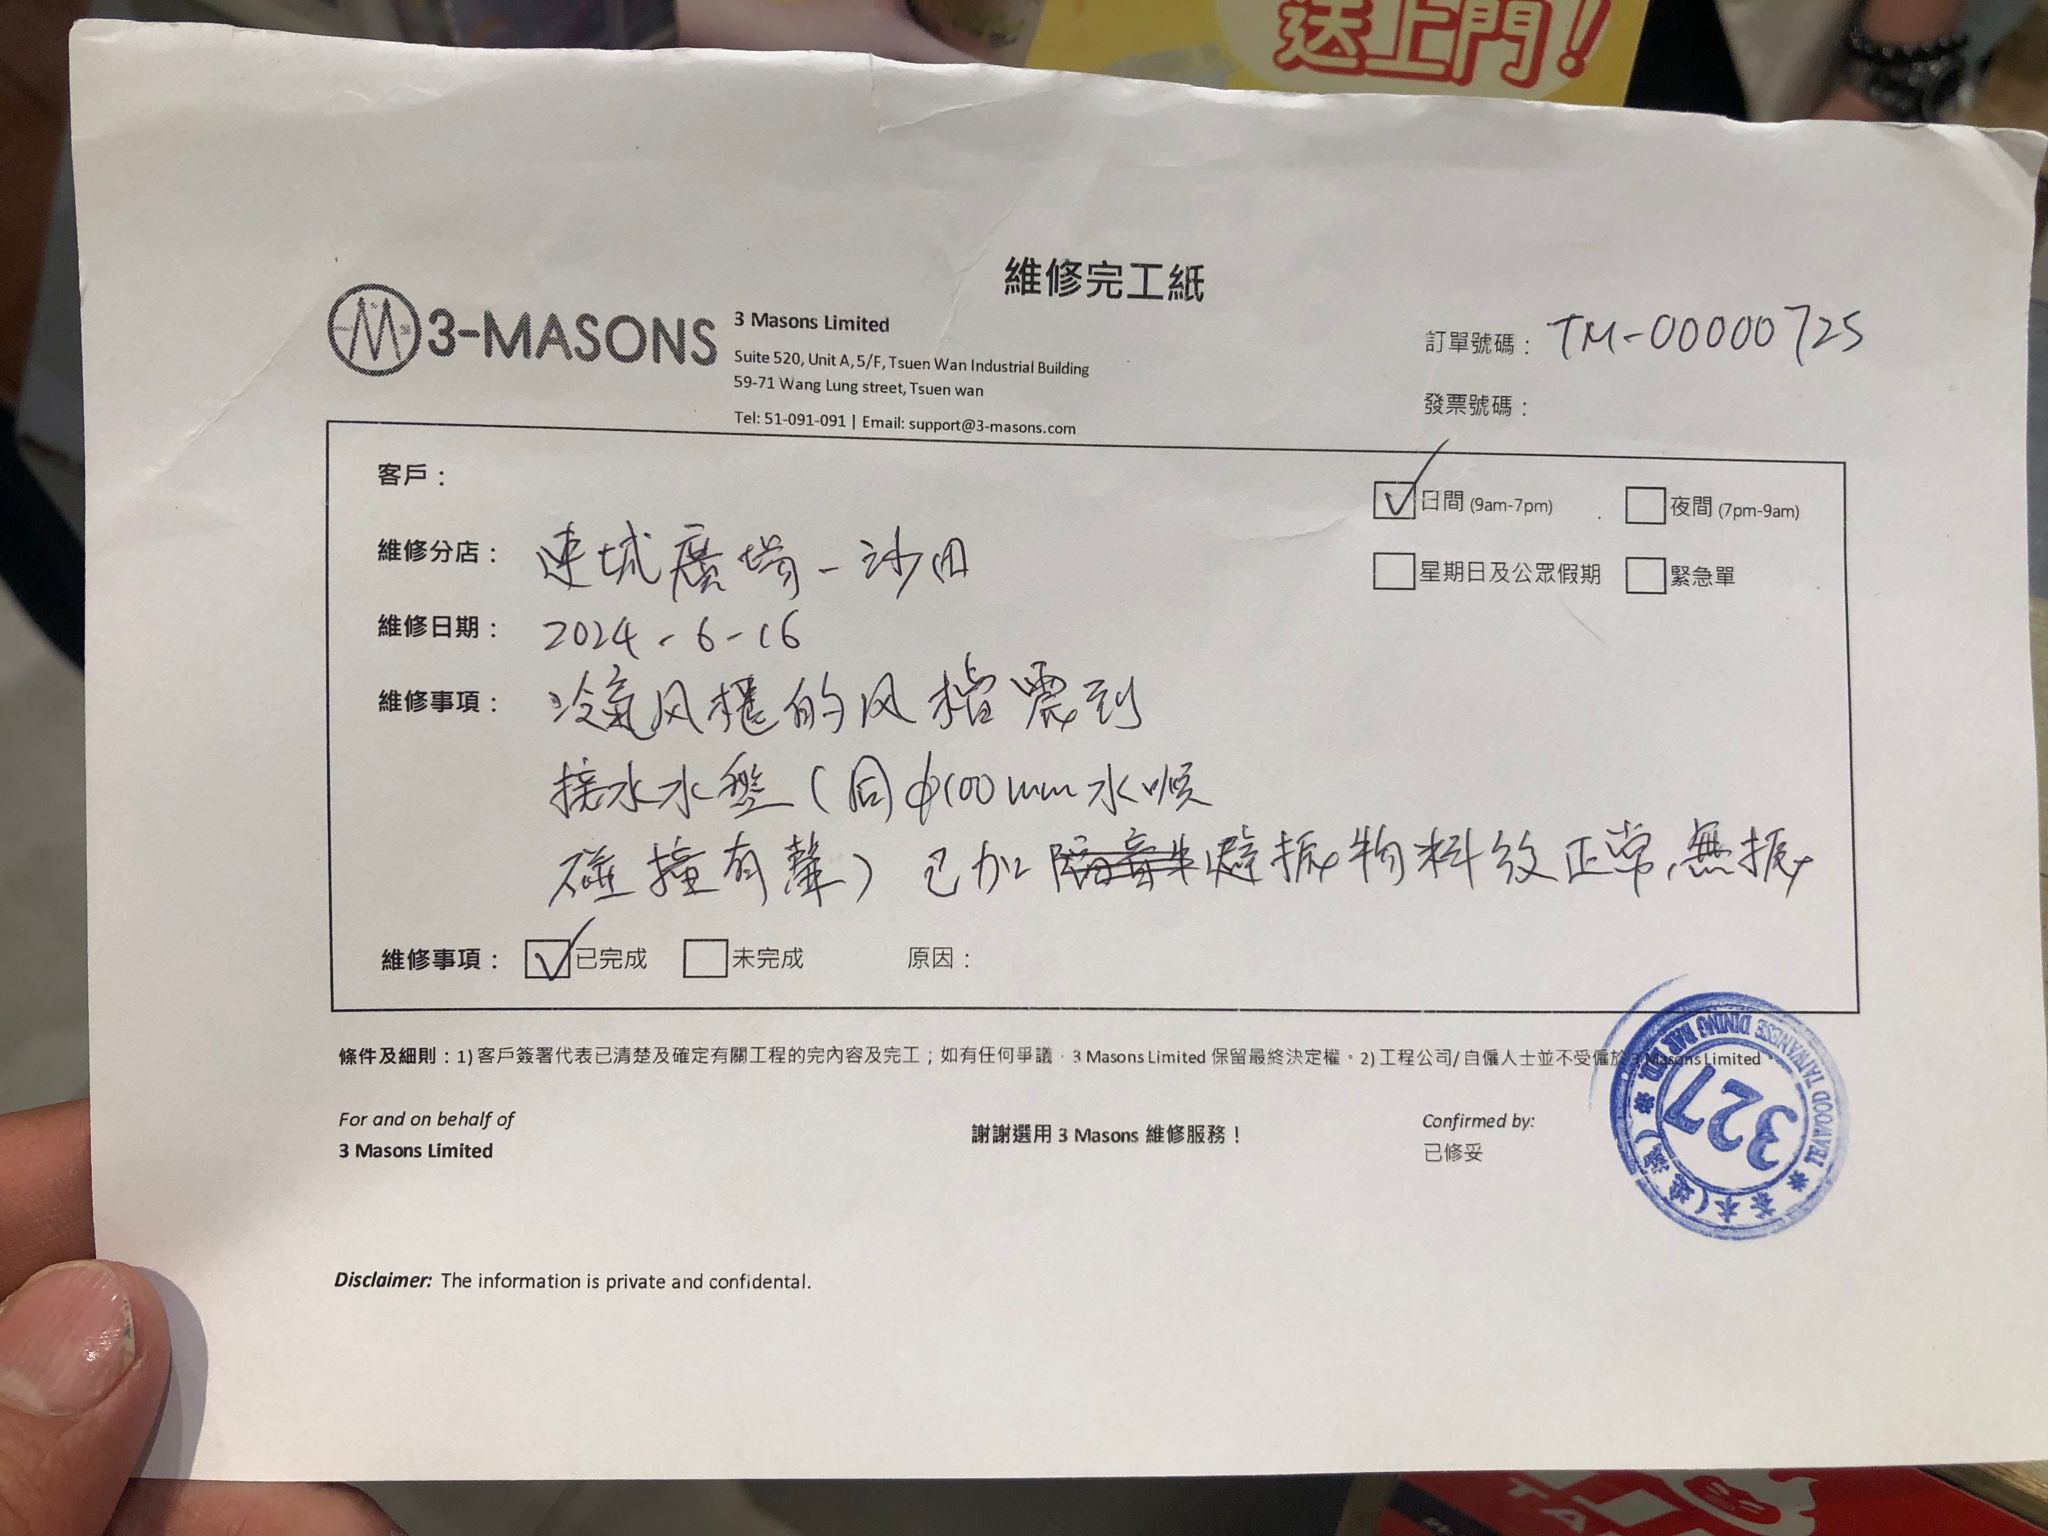 送上門!
維修完工紙
3-MASONS
3 Masons Limited
Suite 520, Unit A, 5/F, Tsuen Wan Industrial Building
59-71 Wang Lung street, Tsuen wan
Tel: 51-091-091 | Email: support@3-masons.com
訂單號碼： TM-00000725
發票號碼：
客戶：
☑日間 (9am-7pm) ☐夜間 (7pm-9am)
維修分店： 連城廣場-沙田
☐星期日及公眾假期 ☐緊急單
維修日期： 2024-6-16
維修事項： 冷氣风櫃的风檔震到
接水水盤(同φ100mm水喉
碰撞有聲) 已加避振物料后正常,無振
維修事項： ☑已完成 ☐未完成 原因：
條件及細則：1) 客戶簽署代表已清楚及確定有關工程的完內容及完工；如有任何爭議，3 Masons Limited 保留最終決定權。2) 工程公司/ 自僱人士並不受僱於 3 Masons Limited。
For and on behalf of
3 Masons Limited
謝謝選用 3 Masons 維修服務！
Confirmed by:
已修妥
WOOD TAIWANESE DINING BAR LTD.
327
Disclaimer: The information is private and confidental.